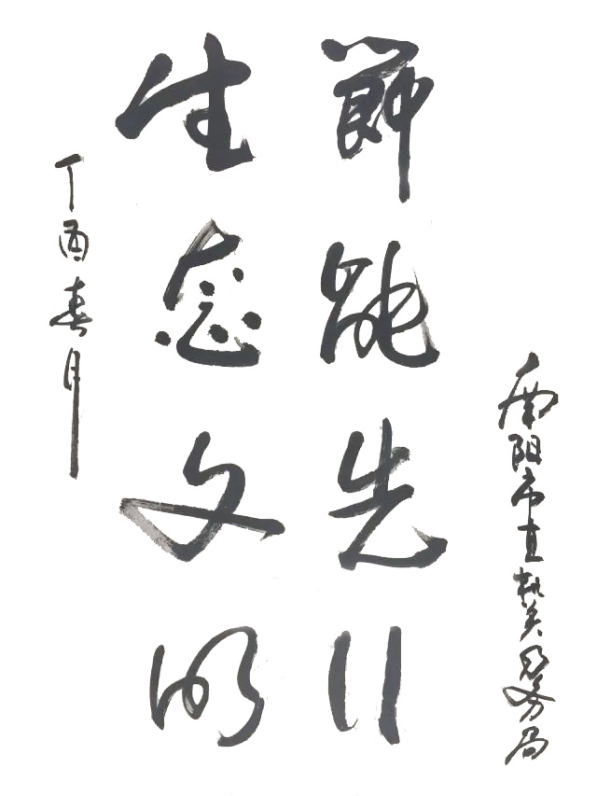 南阳市直机关务局
節能先行
生态文明
丁酉春月